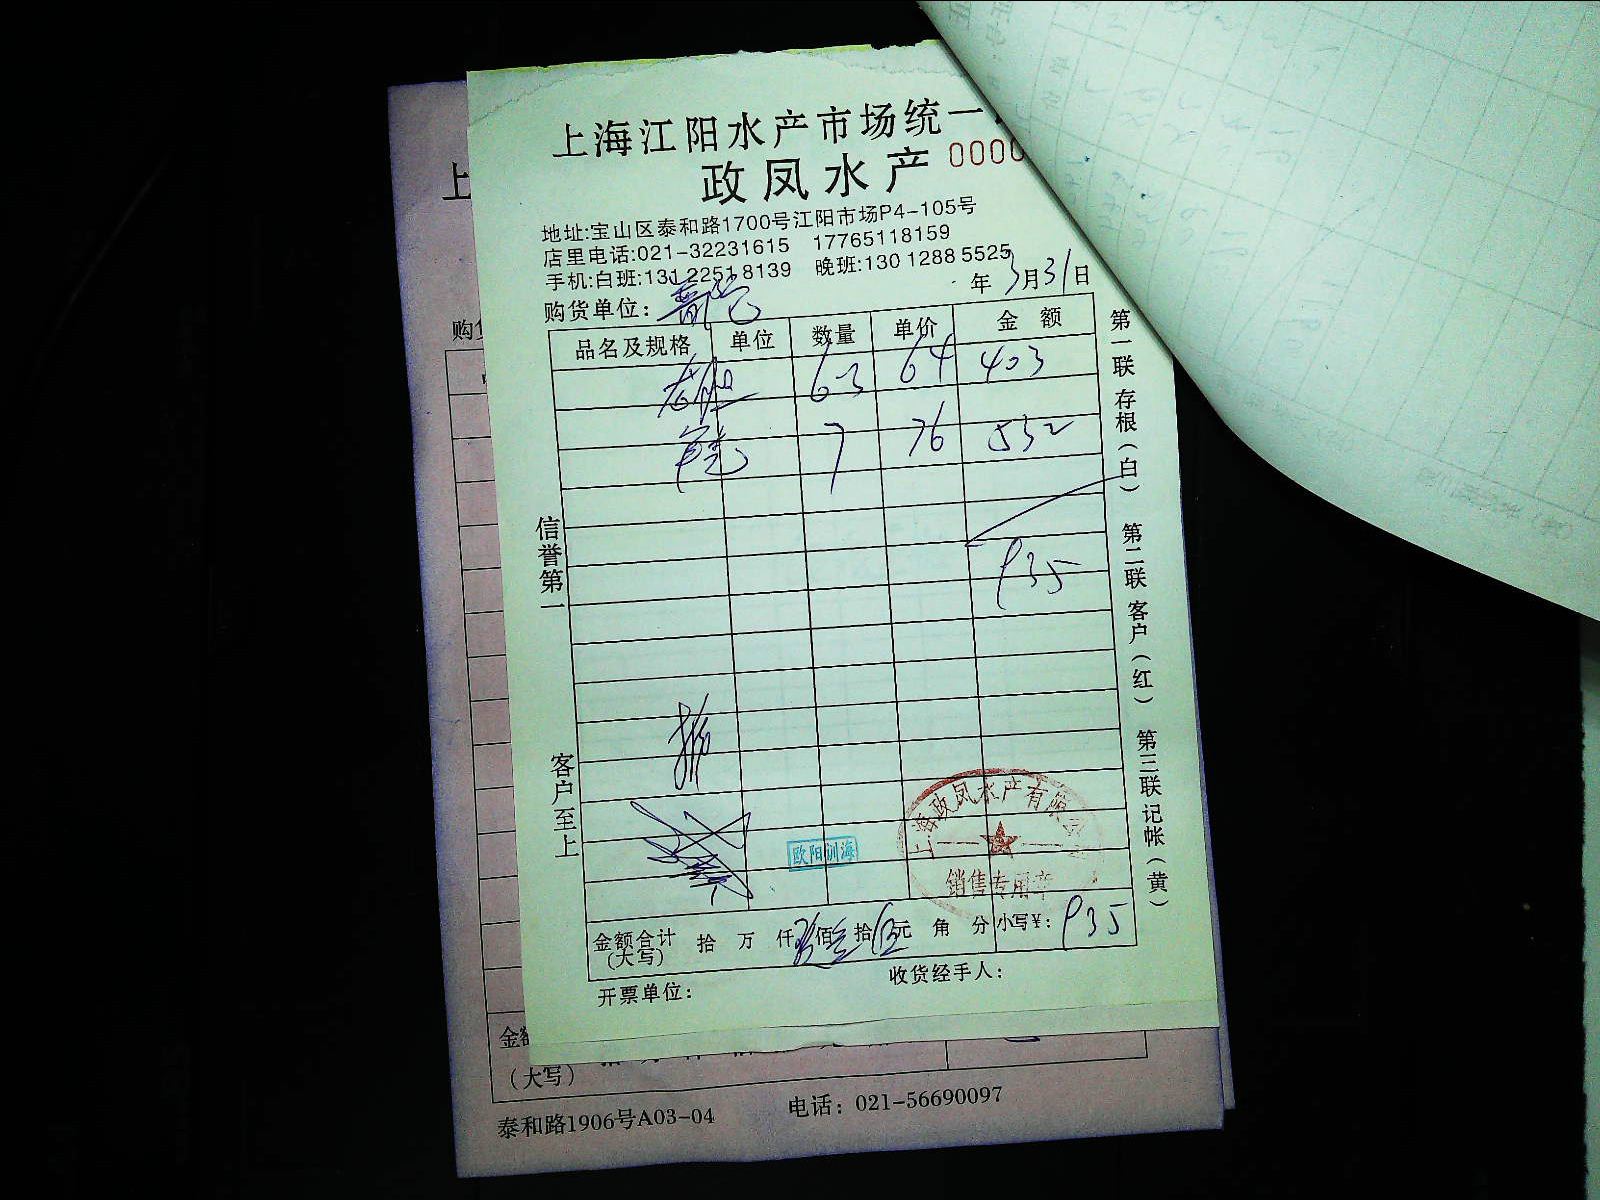 上海江阳水产市场统一
政凤水产 0000
地址:宝山区泰和路1700号江阳市场P4-105号
店里电话:021-32231615 17765118159
手机:白班:131 2251 8139 晚班:130 1288 5525
年 3月31日
购货单位:
品名及规格 单位 数量 单价 金额
63 64 403
7 76 532
935
信誉第一
客户至上
第一联 存根(白) 第二联 客户(红) 第三联 记帐(黄)
欧阳训海
上海政凤水产有限公司
销售专用章
金额合计 拾 万 仟 佰 拾 元 角 分 小写¥: 935
(大写)
开票单位: 收货经手人:
上
购
金
(大写)
泰和路1906号A03-04 电话: 021-56690097